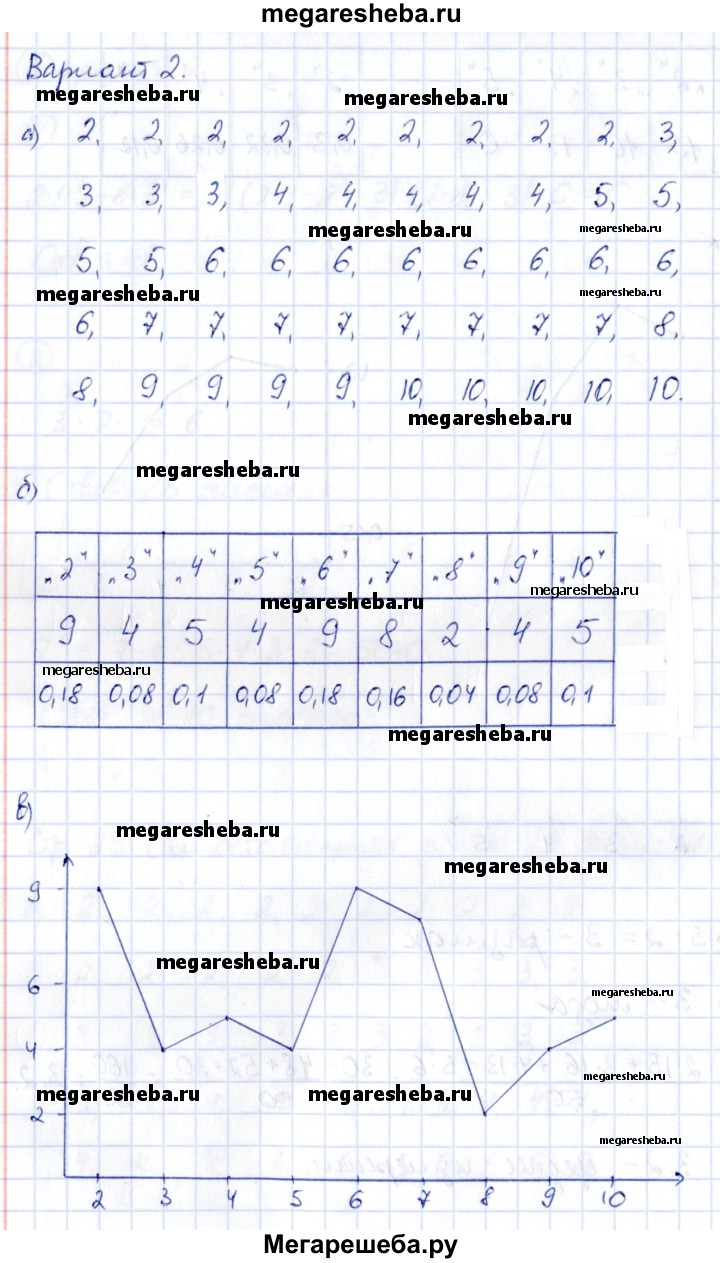 megaresheba.ru
Вариант 2.
megaresheba.ru megaresheba.ru
а) 2, 2, 2, 2, 2, 2, 2, 2, 2, 3,
3, 3, 3, 4, 4, 4, 4, 4, 5, 5,
megaresheba.ru megaresheba.ru
5, 5, 6, 6, 6, 6, 6, 6, 6, 6,
megaresheba.ru megaresheba.ru
6, 7, 7, 7, 7, 7, 7, 7, 7, 8,
8, 9, 9, 9, 9, 10, 10, 10, 10, 10.
megaresheba.ru
megaresheba.ru
б)
„2“ „3“ „4“ „5“ „6“ „7“ „8“ „9“ „10“
megaresheba.ru megaresheba.ru
9 4 5 4 9 8 2 4 5
megaresheba.ru
0,18 0,08 0,1 0,08 0,18 0,16 0,04 0,08 0,1
megaresheba.ru
в)
megaresheba.ru
megaresheba.ru
9
megaresheba.ru
6
megaresheba.ru
4
megaresheba.ru
megaresheba.ru megaresheba.ru
2
megaresheba.ru
2 3 4 5 6 7 8 9 10
Мегарешеба.ру